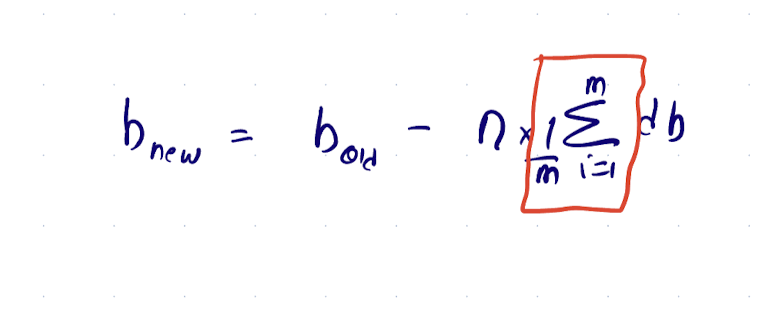 b_new = b_old - η × 1/m ∑_{i=1}^{m} db